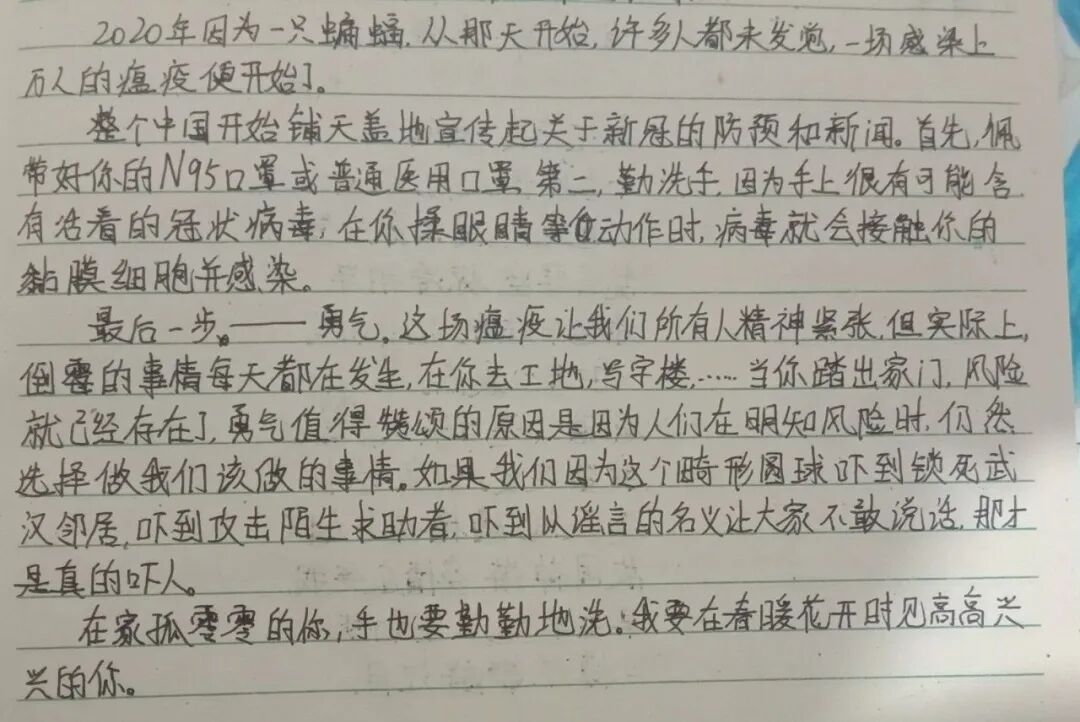 2020年因为一只蝙蝠,从那天开始,许多人都未发觉,一场感染上
万人的瘟疫便开始了。
整个中国开始铺天盖地宣传起关于新冠的防预和新闻。首先,佩
带好你的N95口罩或普通医用口罩,第二,勤洗手,因为手上很有可能含
有活着的冠状病毒,在你揉眼睛等动作时,病毒就会接触你的
黏膜细胞并感染。
最后一步——勇气。这场瘟疫让我们所有人精神紧张,但实际上,
倒霉的事情每天都在发生,在你去工地,写字楼,……当你踏出家门,风险
就已经存在了,勇气值得赞颂的原因是因为人们在明知风险时,仍然
选择做我们该做的事情。如果我们因为这个畸形圆球吓到锁死武
汉邻居,吓到攻击陌生求助者,吓到以谣言的名义让大家不敢说话,那才
是真的吓人。
在家孤零零的你,手也要勤勤地洗。我要在春暖花开时见高高兴
兴的你。